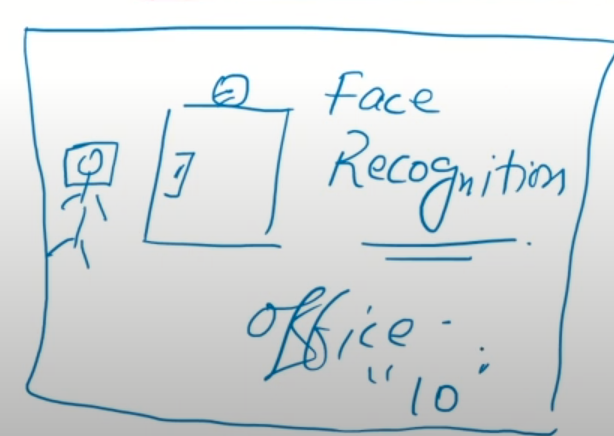 Face
Recognition
Office - .
"10"